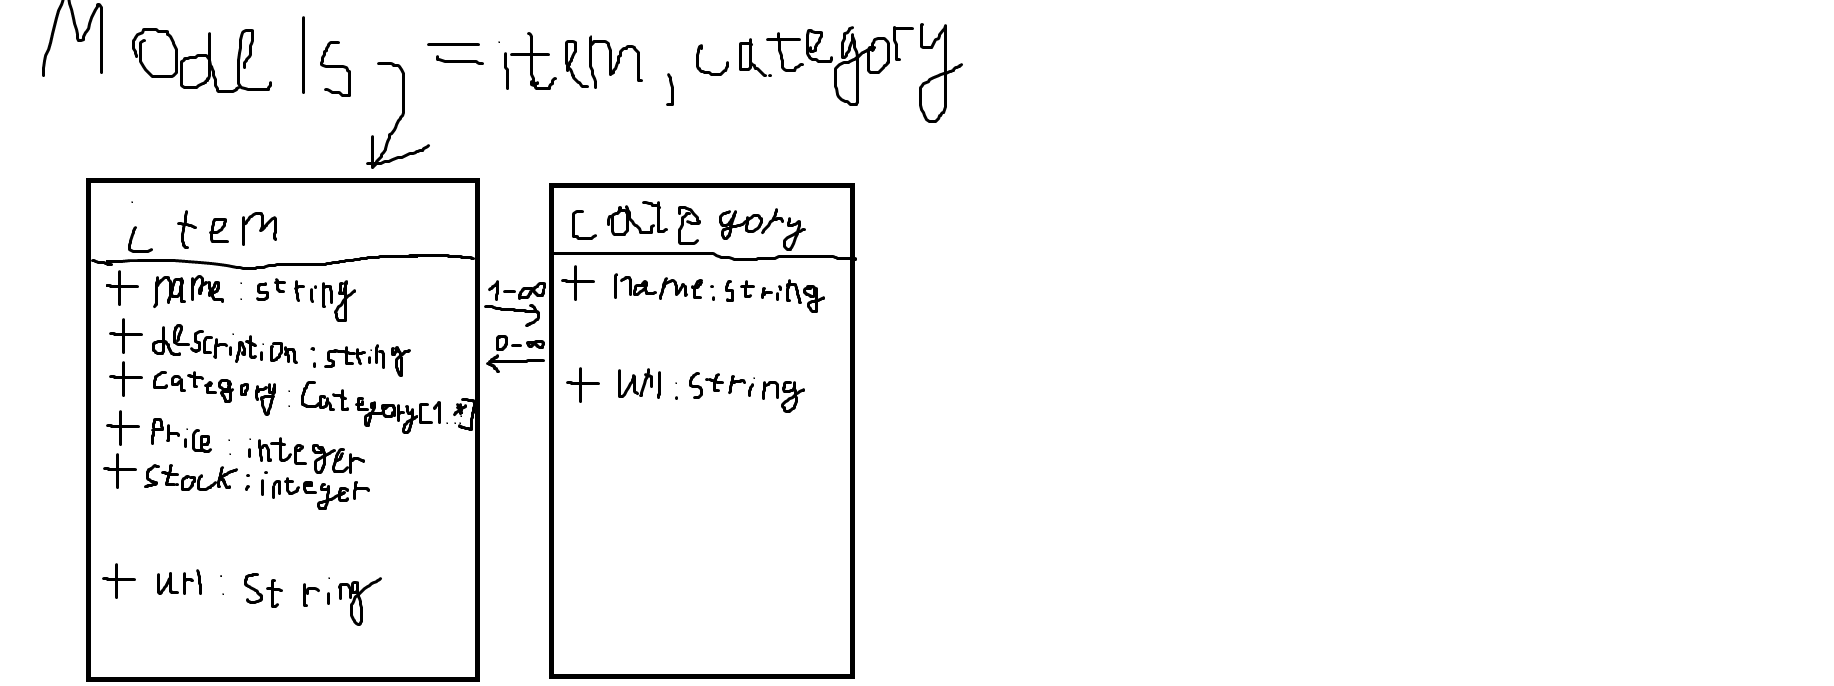 Models, = item, category
item
+ name : string
+ description : string
+ category : Category [1..*]
+ Price : integer
+ stock : integer
+ url : string
1-∞
0-∞
category
+ name : string
+ url : string